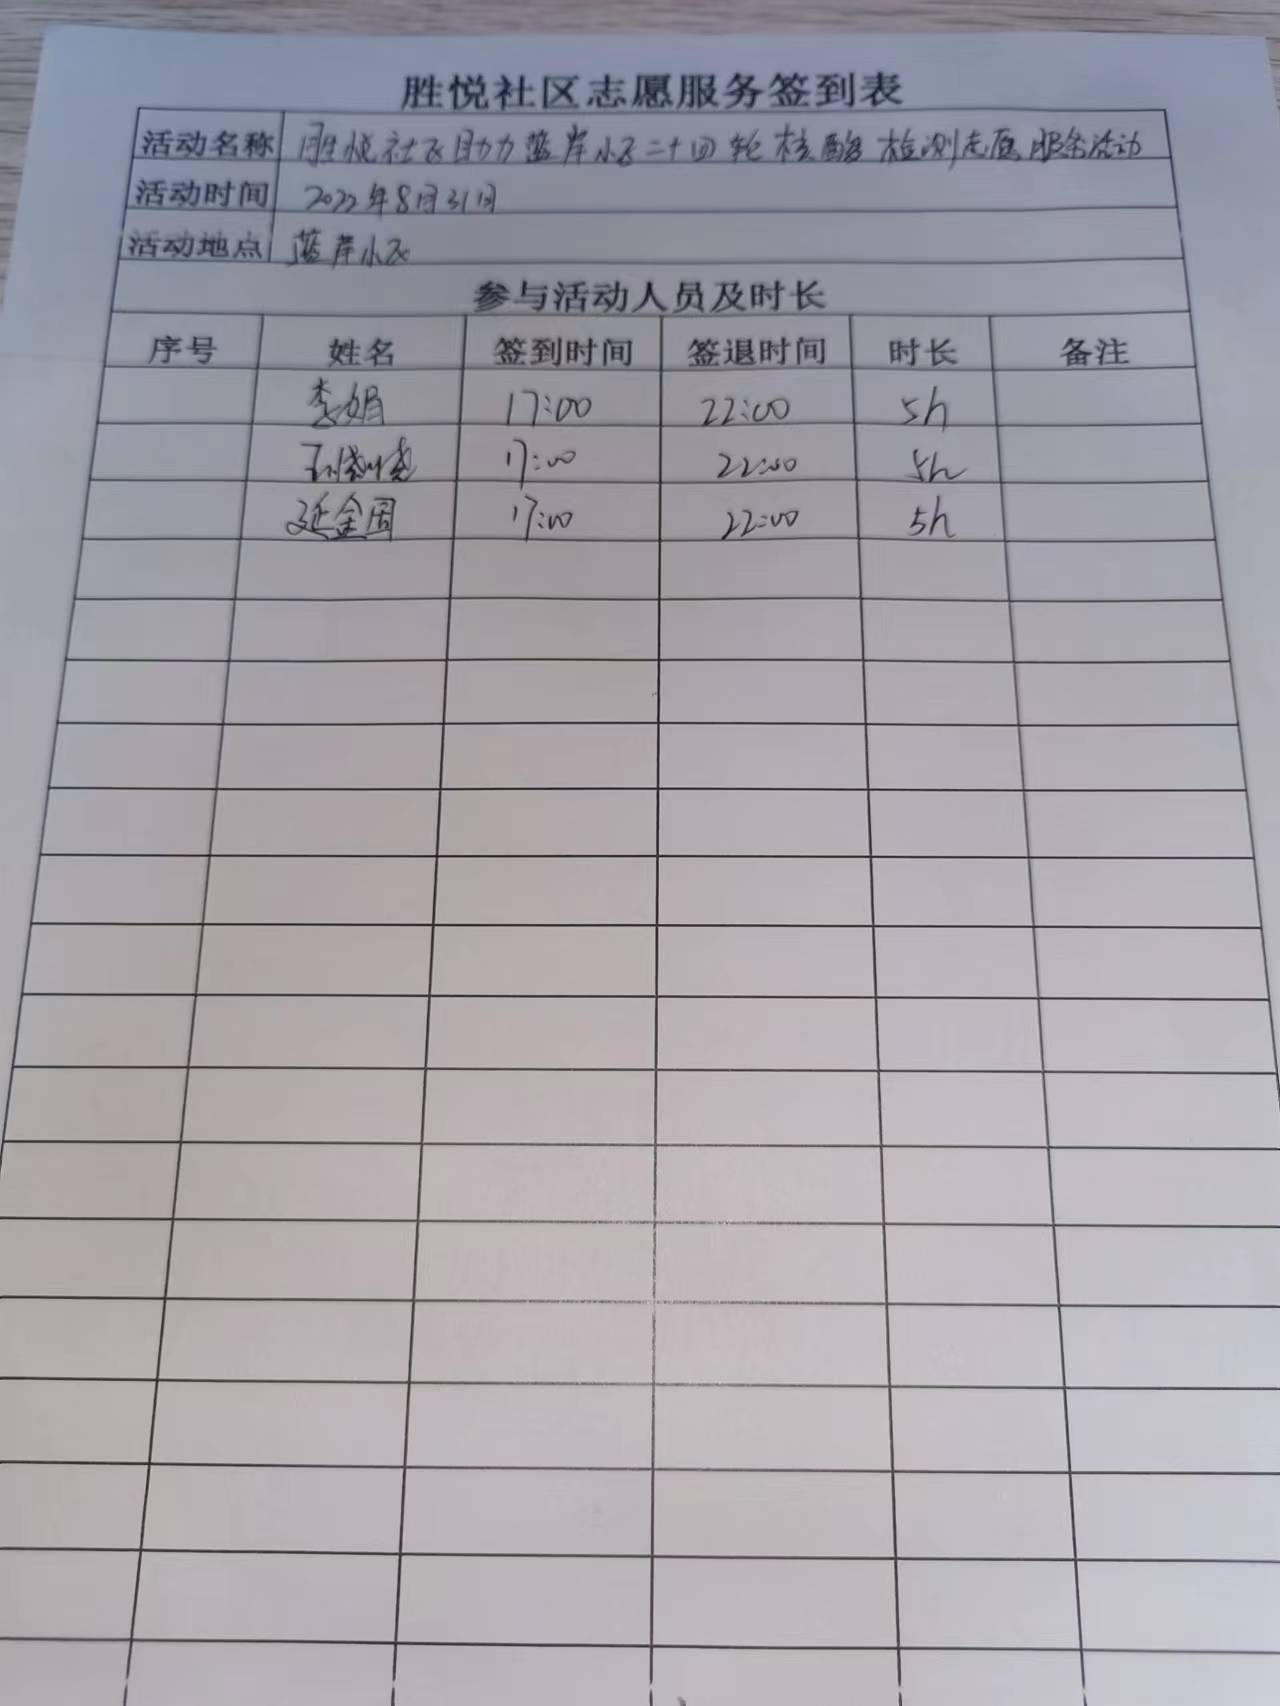 胜悦社区志愿服务签到表
活动名称 胜悦社区助力蓝岸小区二十四轮核酸检测志愿服务活动
活动时间 2022年8月31日
活动地点 蓝岸小区
参与活动人员及时长
序号 姓名 签到时间 签退时间 时长 备注
李娟 17:00 22:00 5h
17:00 22:00 5h
延金周 17:00 22:00 5h